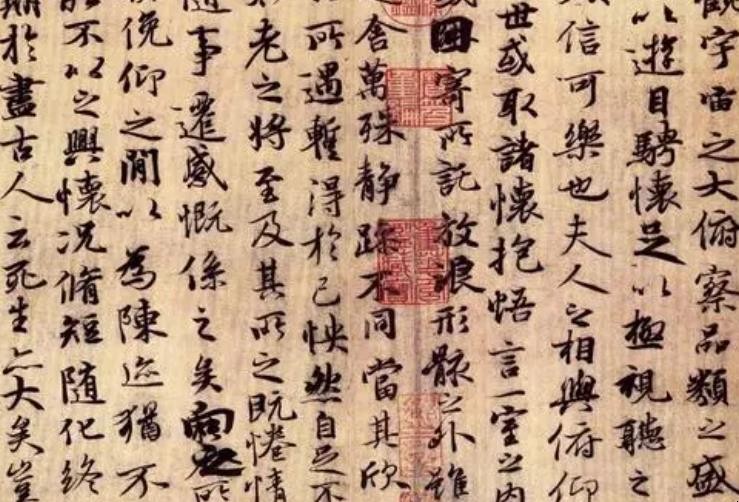 觀宇宙之大俯察品類之盛
以遊目騁懷足以極視聽之
信可樂也夫人之相與俯仰
世或取諸懷抱悟言一室之内
因寄所託放浪形骸之外雖
舍萬殊静躁不同當其欣
所遇暫得於己怏然自足不
老之將至及其所之既惓情
隨事遷感慨係之矣向之所
俛仰之間以為陳迹猶不
能不以之興懷況脩短随化終
期於盡古人云死生亦大矣豈